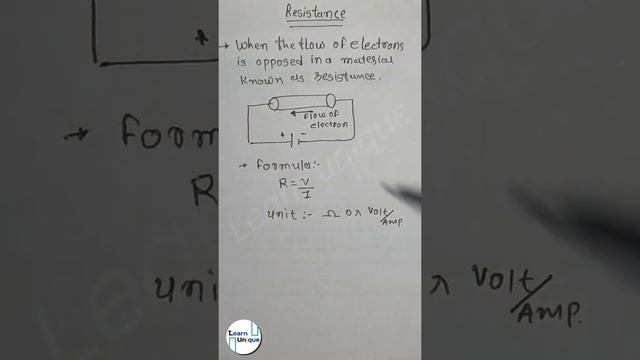 Resistance
→ When the flow of electrons
is opposed in a material
known as resistance.
flow of
electron
+ -
→ formula:-
R = V/I
unit :- Ω or Volt/Amp.
Learn Unique
Learn
Unique
+
→ Formu
R
unit
r Volt/Amp.